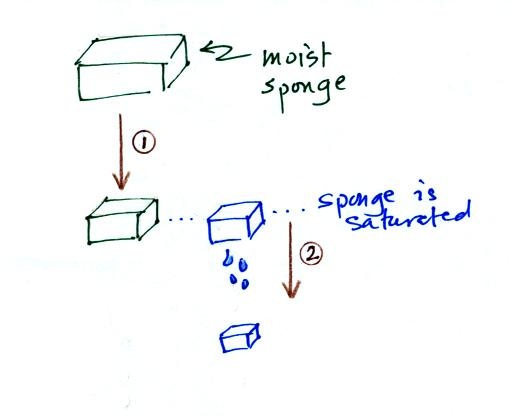 moist
sponge
①
... ... sponge is
satureted
②